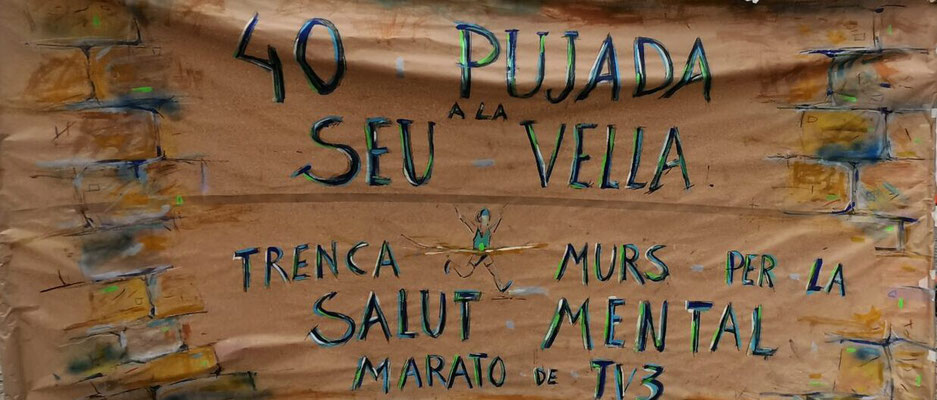 40 PUJADA
A LA
SEU VELLA
TRENCA MURS PER LA
SALUT MENTAL
MARATO DE TV3